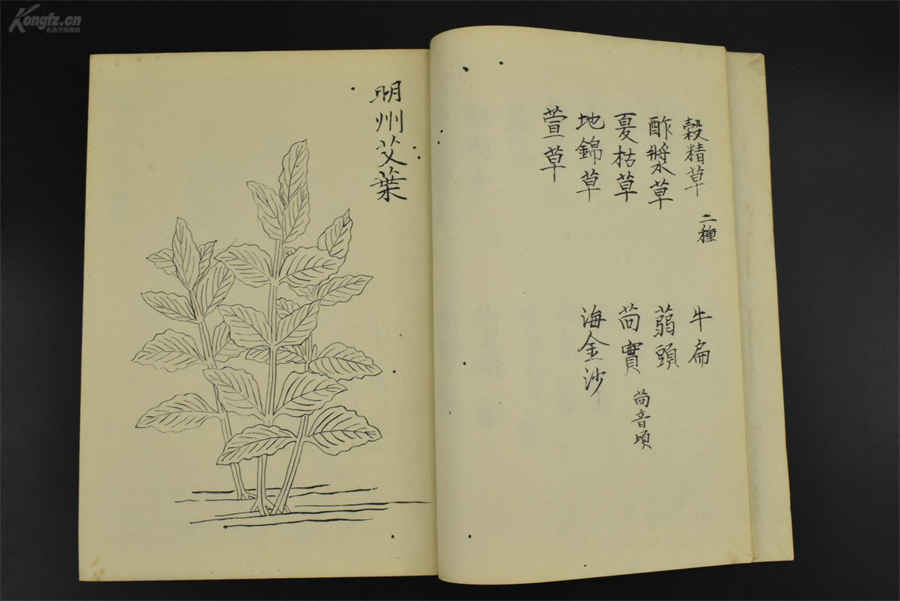 穀精草 二種 牛扁
酢漿草 蒻頭
夏枯草 苘實 苘音頃
地錦草 海金沙
萱草
明州艾葉
Kongfz.cn